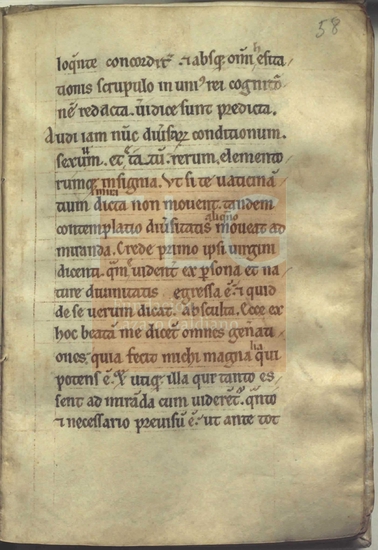 58
loqnte concordit̃ & absq; om̃i hesita
tionis scrupulo in uni⁹ rei cognitõ
nẽ redacta. ũidice sunt predicta.
Audi iam nũc diũsaꝝ conditionum.
sexuũm. et cẽtaꝝ tũ. rerum. elemento
rumq; insignia. Vt si te uaticinã
tium simul dicta non mouent. tandem
contemplatio diũsitatis aliqño moueat ad
miranda. Crede primo ipsi uirgini
dicenti. qm̃ euident ex p̱sona et na
ture diuinitatis egressa ẽ. & quid
de se uerum dicat. absculta. Ecce ex
hoc beatã me dicẽt omnes geñati
ones, quia fecit michi magnalia qui
potens ẽ. utiq; illa que tanto es
sent ad mirãda cum uiderẽt. qñto
& necessario preuisũ ẽ. ut ante tot